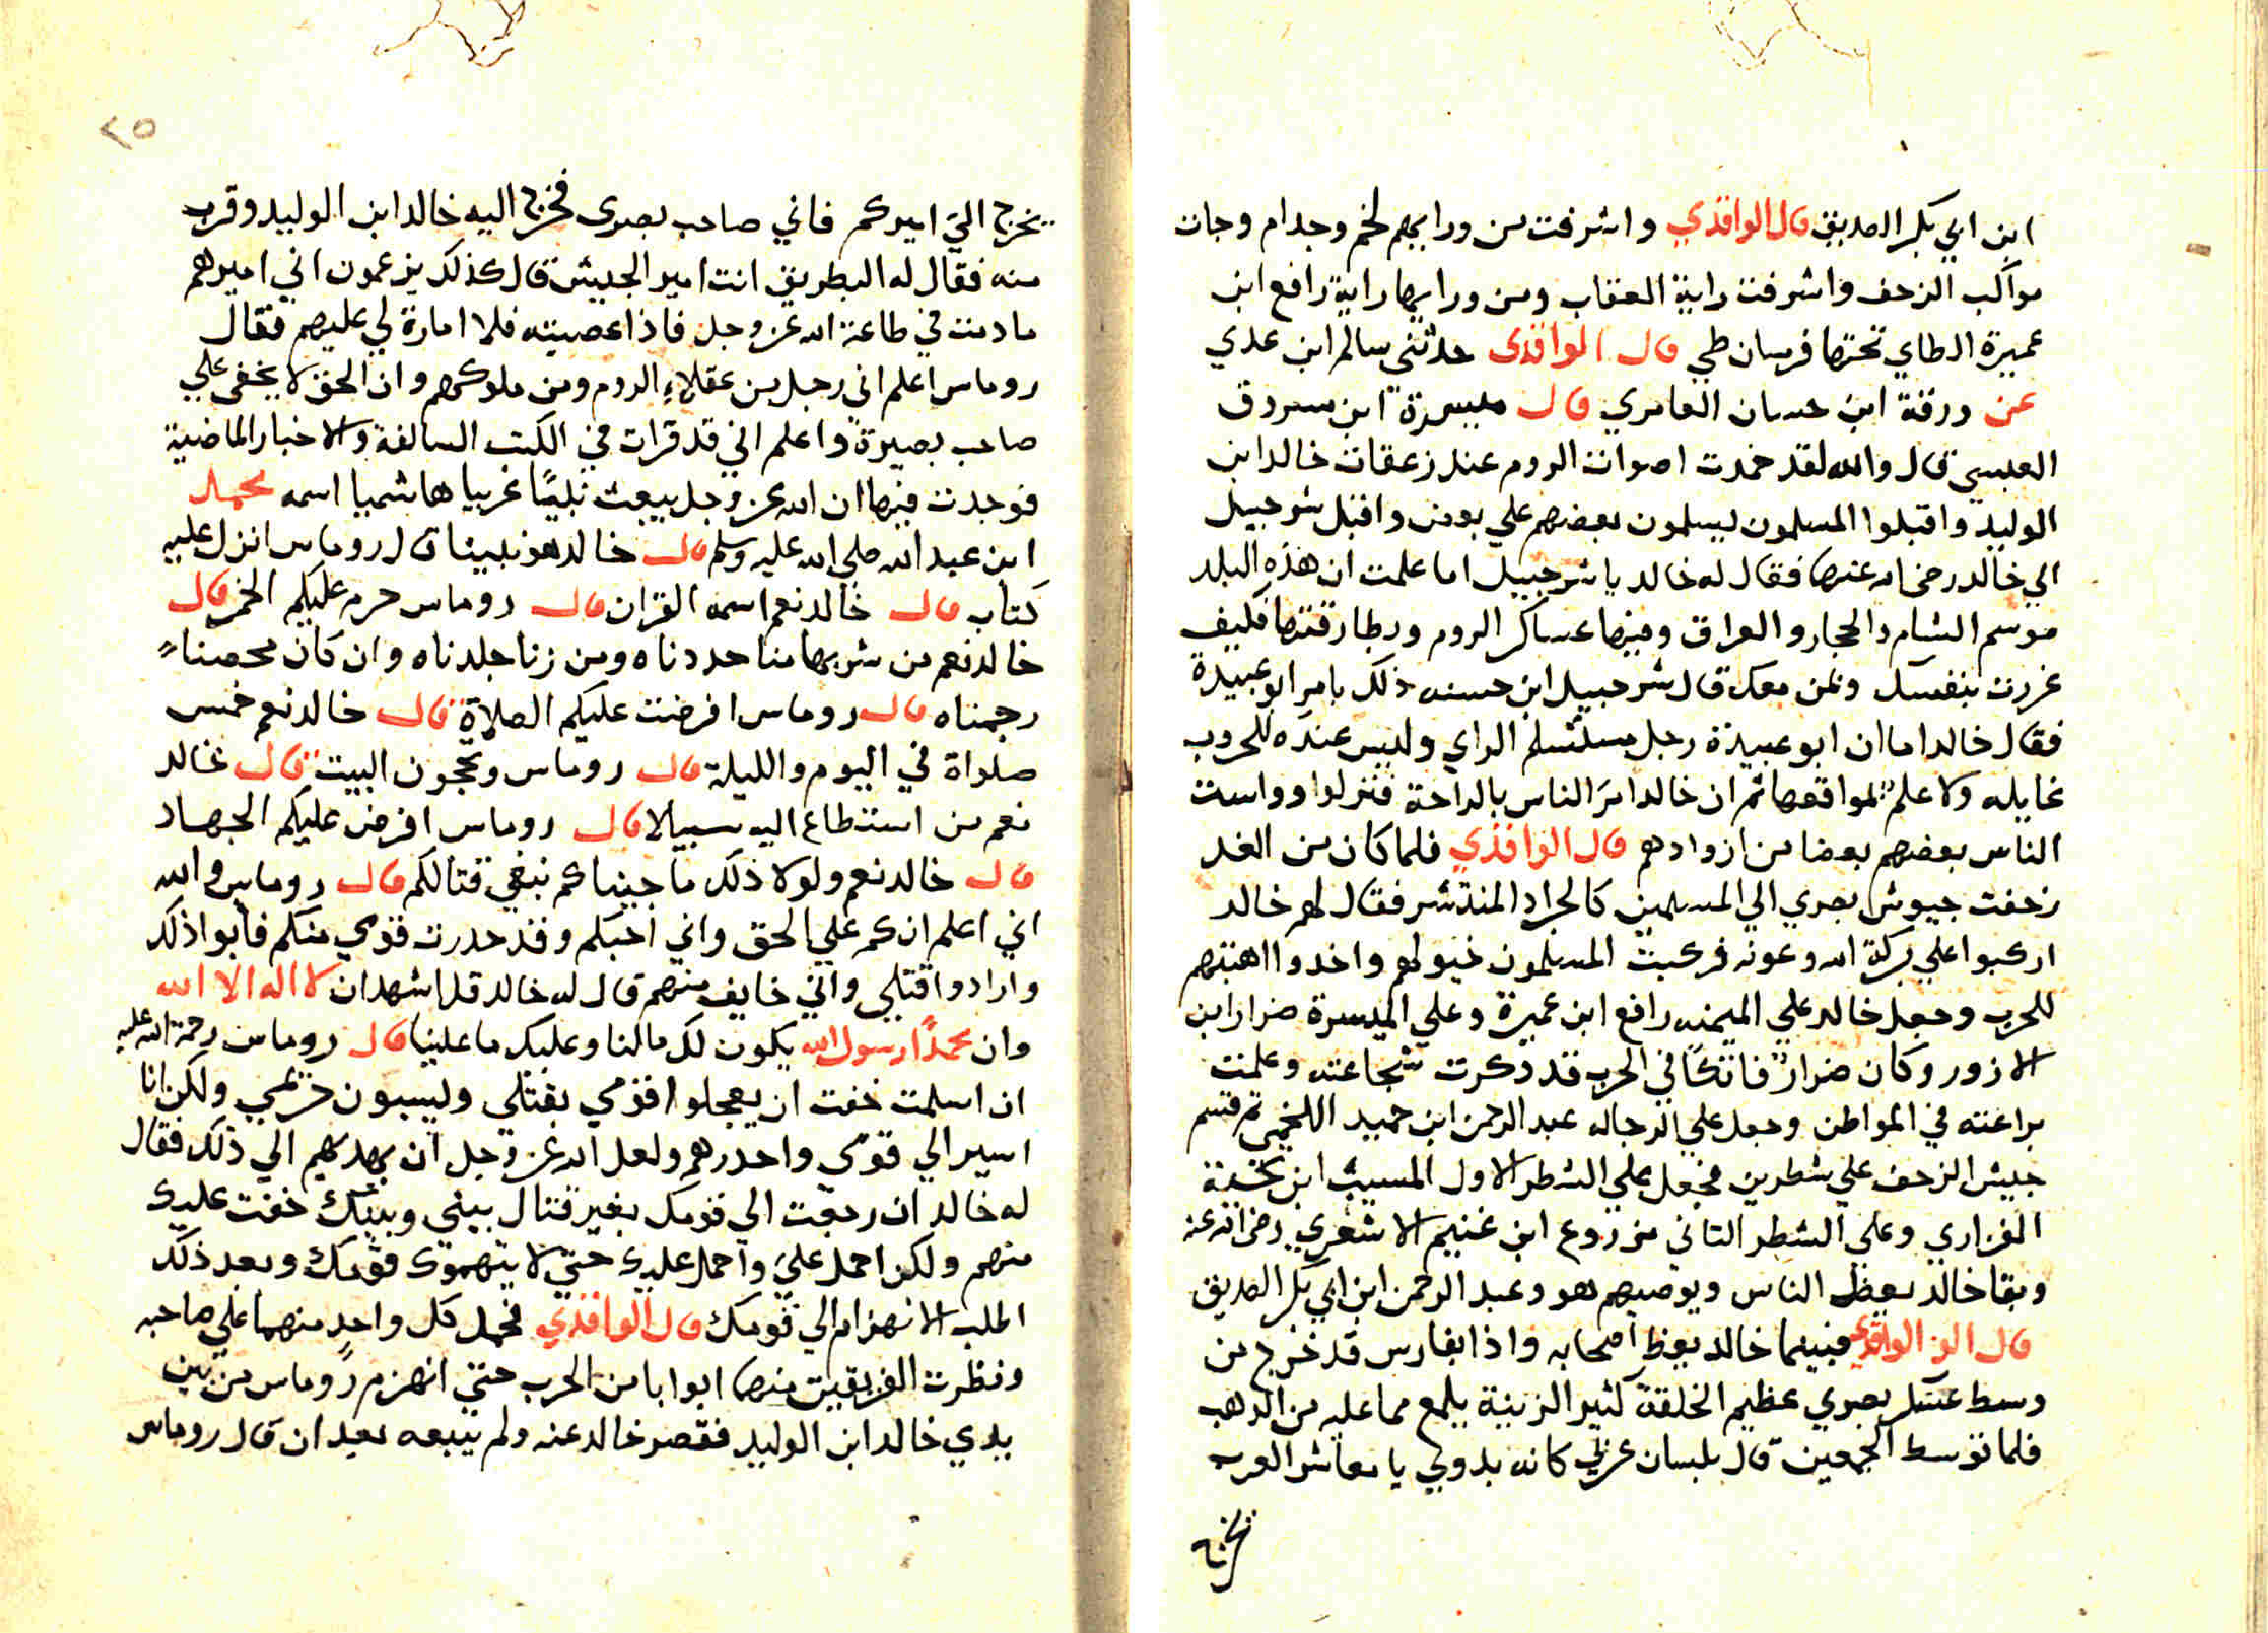 ابن ابي بكر الصديق قال الواقدي واشرفت من ورايهم لخم وجدام وجات
مواكب الزحف واشرفت راية العقاب ومن ورايها راية رافع ابن
عميرة الطاي تحتها فرسان طي قال الواقدى حدثني سالم ابن عدي
عن ورقة ابن حسان العامري قال ميسرة ابن مسروق
العبسي قال والله لقد خمدت اصوات الروم عند زعقات خالد ابن
الوليد واقبلوا المسلمون يسلمون بعضهم علي بعض واقبل شرحبيل
الي خالد رضي الله عنها فقال له خالد يا شرحبيل اما علمت ان هذه البلد
موسم الشام والحجاز والعراق وفيها عساكر الروم وبطارقتها فكيف
غررت بنفسك وبمن معك قال شرحبيل ابن حسنه ذلك بامر ابو عبيدة
فقال خالد اما ان ابو عبيدة رجل الراي وليس عنده للحروب
غايله ولا علم بمواقعها ثم ان خالد امر الناس بالراحة فنزلوا وواست
الناس بعضهم بعضا من ازوادهم قال الواقدي فلما كان من الغد
زحفت جيوش بصري الي المسلمين كالجراد المنتشر فقال لهم خالد
اركبوا علي بركة الله وعونه فركبت المسلمون خيولهم واخدوا اهبتهم
للحرب وجعل خالد علي الميمنه رافع ابن عميرة وعلي الميسرة ضرار ابن
الازور وكان ضرار فاتكا في الحرب قد دكرت شجاعته وعلمت
براعته في المواطن وجعل علي الرجاله عبد الرحمن ابن حميد اللخمي ثم قسم
جيش الزحف علي شطرين فجعل علي الشطر الاول المسيب ابن
الفزاري وعلي الشطر التاني من زوع ابن غنيم الاشعري رضي الله عنه
وبقا خالد يعظ الناس ويوصيهم هو وعبد الرحمن ابن ابي بكر الصديق
قال الو الواقدي فبينما خالد يعظ اصحابه واذا بفارس قد خرج من
وسط عسكر بصري عظيم الخلقة كثير الزينة يلمع مما عليه من الدهب
فلما توسط الجمعين قال بلسان عربي كانه بدوي يا معاشر العرب
يخرج
٢٥
يخرج الي اميركم فاني صاحب بصرى فخرج اليه خالد ابن الوليد وقرب
منه فقال له البطريق انت امير الجيش قال كذلك يزعمون اني اميرهم
ما دمت في طاعة الله عز وجل فاذا عصيته فلا امارة لي عليهم فقال
روماس اعلم اني رجل من عقلاء الروم ومن ملوكهم وان الحق لا يخفى علي
صاحب بصيرة واعلم اني قد قرات في الكتب السالفة والاخبار الماضية
فوجدت فيها ان الله عز وجل يبعث نبيًا عربيا هاشميا اسمه محمد
ابن عبد الله صلي الله عليه وسلم قال خالد هو نبينا قال روماس انزل عليه
كتاب قال خالد نعم اسمه القران قال روماس حرم عليكم الخمر قال
خالد نعم من شربها منا حددناه ومن زنا جلدناه وان كان محصناءً
رجمناه قال روماس افرضت عليكم الصلاة قال خالد نعم خمس
صلواة في اليوم والليلة قال روماس وتحجون البيت قال خالد
نعم من استطاع اليه سبيلا قال روماس افرض عليكم الجهاد
قال خالد نعم ولولا ذلك ما جيناكم نبغي قتالكم قال روماس والله
اني اعلم انكم علي الحق واني احبكم وقد حدرت قومي منكم فابوا ذلك
وارادوا قتلي واني خايف منهم قال له خالد قل اشهد ان لا اله الا الله
وان محمدًا رسول الله يكون لك ما لنا وعليك ما علينا قال روماس رحمة الله عليه
ان اسلمت خفت ان يعجلوا قومي بقتلي ويسبون حريمي ولكن انا
اسير الي قومي واحدرهم ولعل الله عز وجل ان يهديهم الي ذلك فقال
له خالد ان رجعت الي قومك بغير قتال بيني وبينك خفت عليك
منهم ولكن احمل علي واحمل عليك حتي لا يتهموك قومك وبعد ذلك
اطلب الانهزام الي قومك قال الواقدي فحمل كل واحد منهما علي صاحبه
ونظرت الفريقين منهما ابوابا من الحرب حتي انهزم روماس من بين
يدي خالد ابن الوليد فقصر خالد عنه ولم يتبعه بعد ان قال روماس